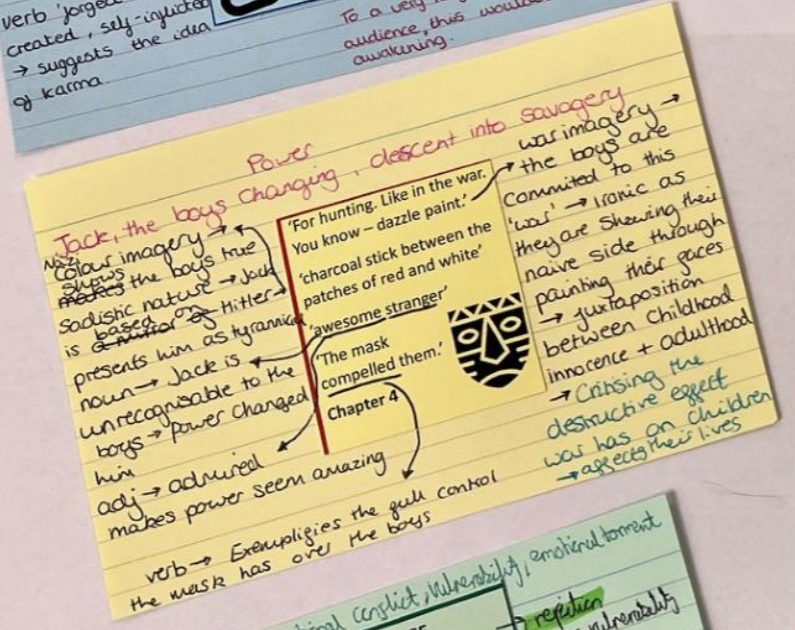 verb 'forged
created, self-inflicted
→ suggests the idea
of karma.
To a very
audience, this would
awakening.
Power
Jack, the boys changing, descent into savagery
Nazi
Colour imagery →
shows
makes the boys true
sadistic nature → Jack
is based on Hitler →
presents him as tyrannical
noun → Jack is
unrecognisable to the
boys → power changed
him
adj → admired
makes power seem amazing
'For hunting. Like in the war.
You know – dazzle paint.'
'charcoal stick between the
patches of red and white'
'awesome stranger'
'The mask
compelled them.'
Chapter 4
war imagery →
the boys are
commited to this
'war' → ironic as
they are showing their
naive side through
painting their faces
→ juxtaposition
between childhood
innocence + adulthood
→ Critising the
destructive effect
war has on children
→ affects their lives
verb → Exemplifies the full control
the mask has over the boys
conflict, vulnerability, emotional torment
→ rejection
vulnerability